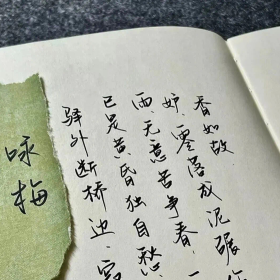 咏梅
驿外断桥边,
已是黄昏独自愁
雨,无意苦争春,
妒.零落成泥碾
香如故.